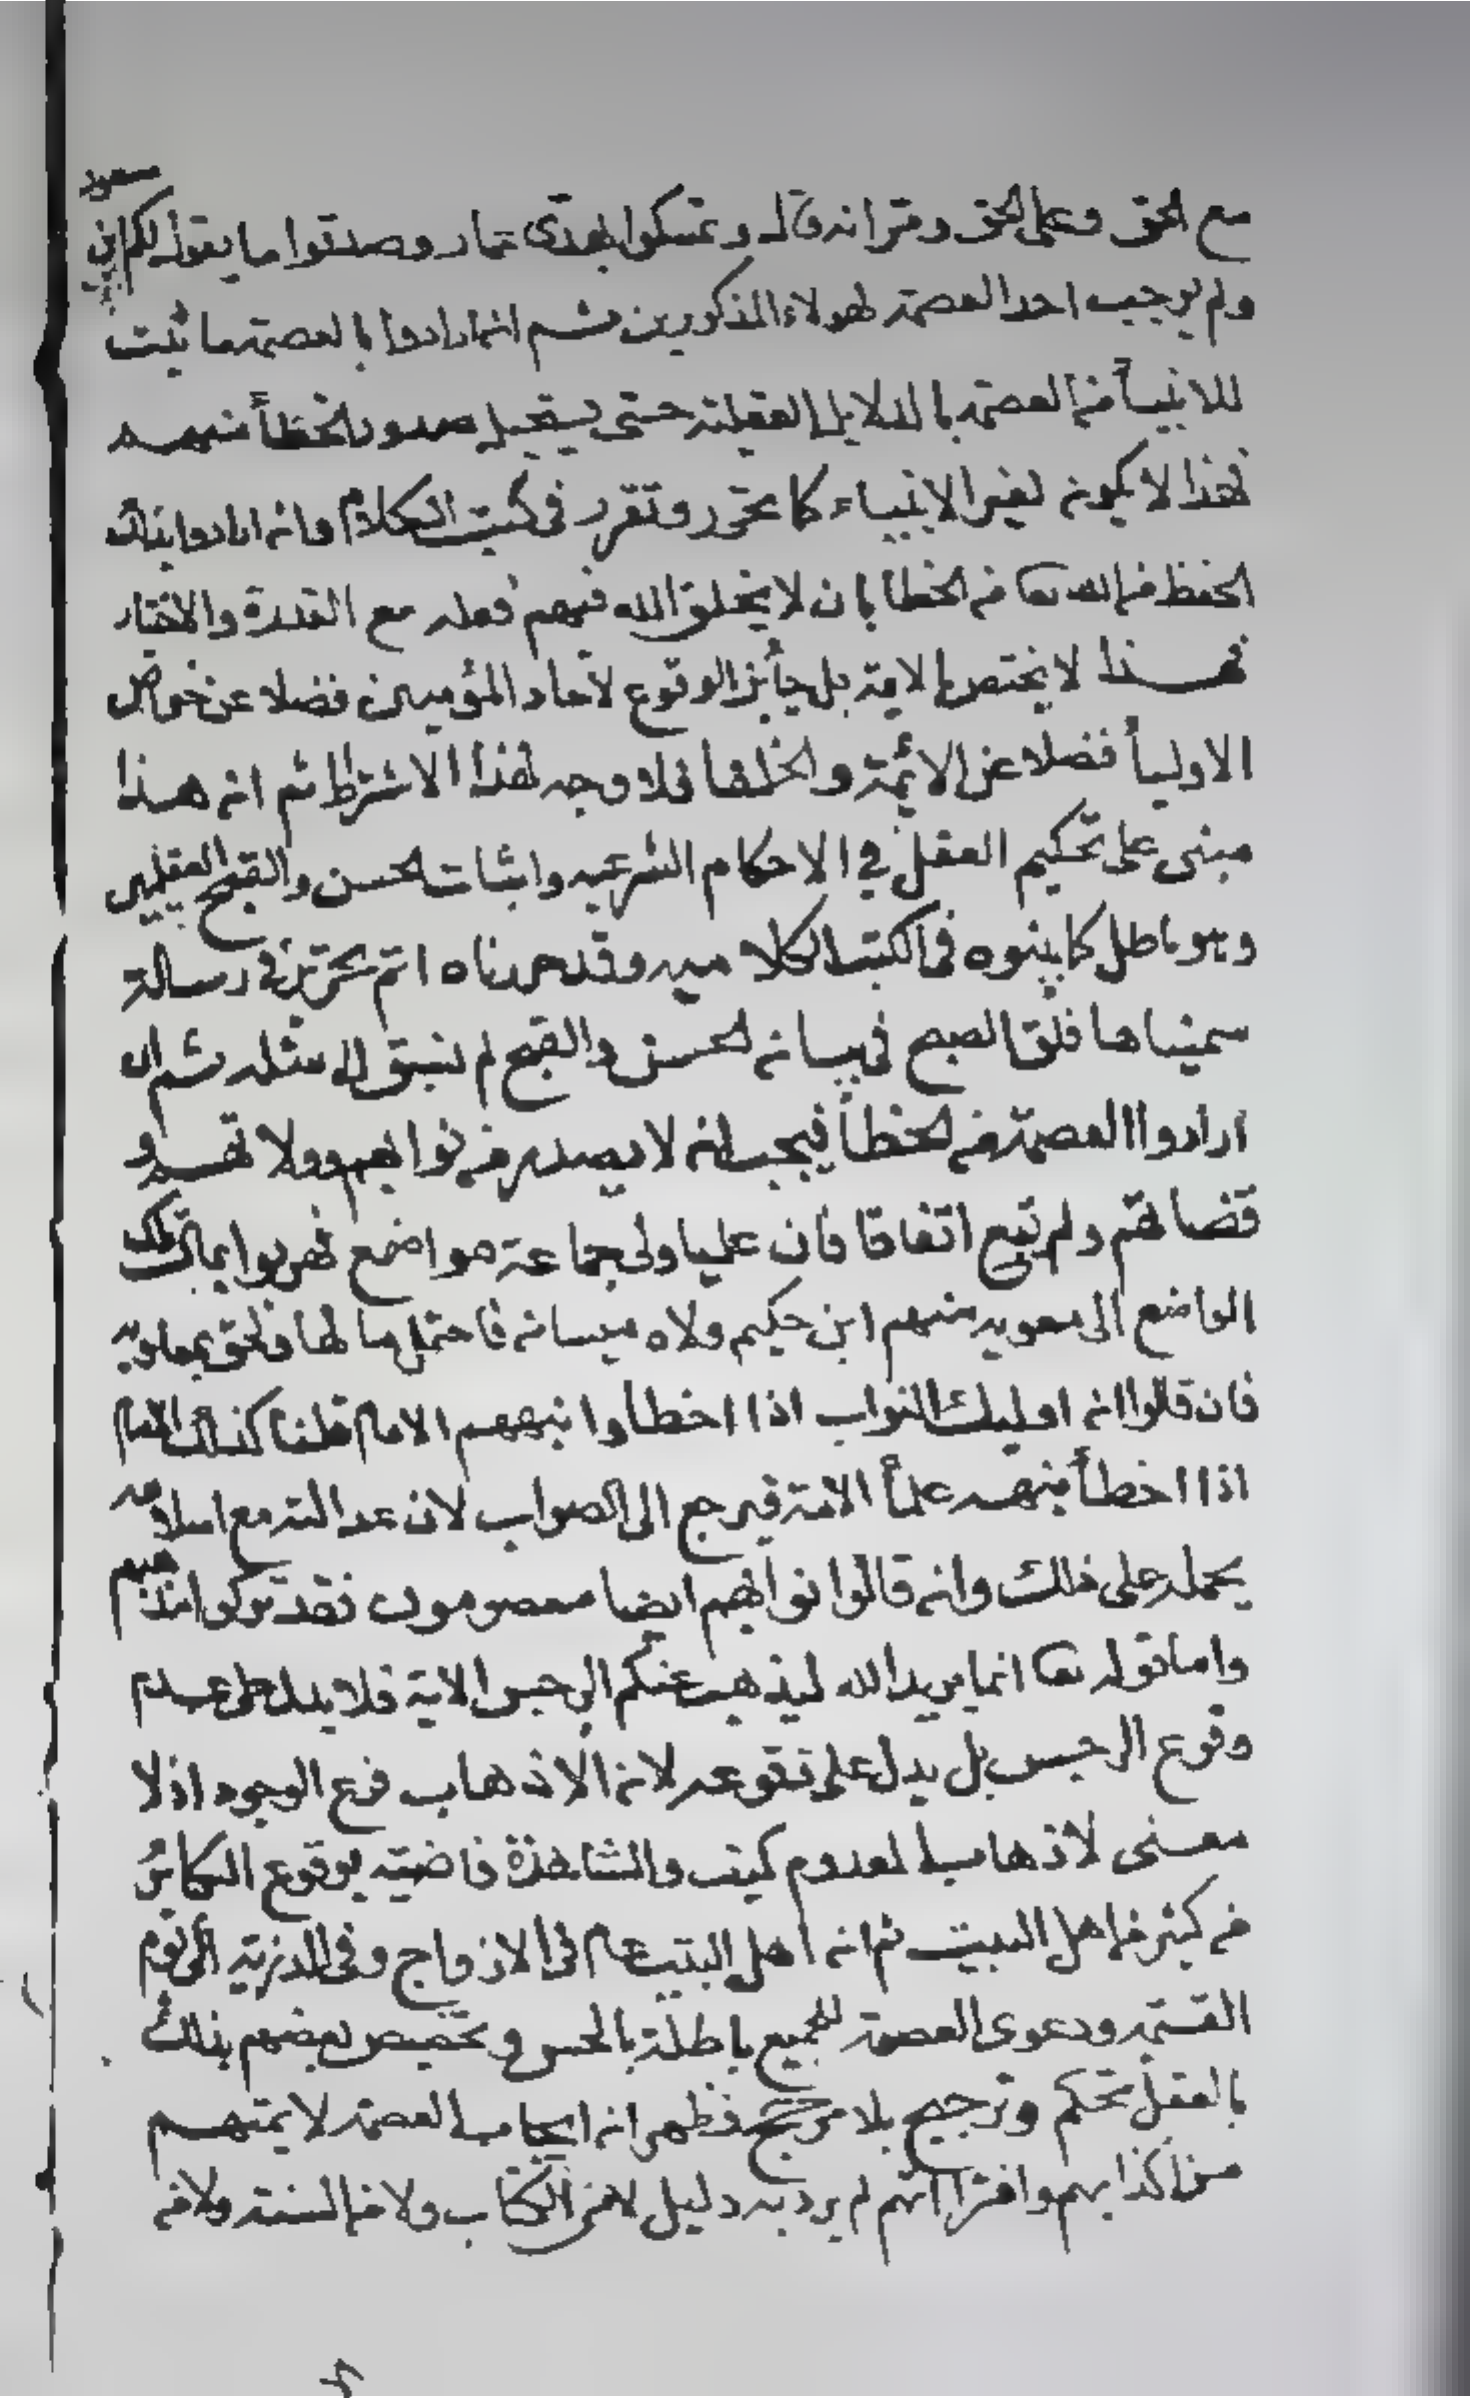 مع الحق وعلى الحق ومر انه قال وتمسكوا بهدى عمار وصدقوا ما يقول لكم ابن مسعود
ولم يوجب احد العصمة لهولاء المذكورين ثم انما ارادوا بالعصمة ما ثبت
للانبيأ من العصمة بالدلايل العقلية حتى يستحيل صدور الخطأ منهم
فهذا لا يكون لغير الانبياء كما تحرر وتقرر فى كتب الكلام وان ارادوا بذلك
الحفظ من الله تعا من الخطا بان لا يخلق الله فيهم فعله مع القدرة والاختيار
فهذا لا يختص بالايمة بل جأيز الوقوع لآحاد المؤمنين فضلا عن خواص
الاوليأ فضلا عن الائمة والخلفا فلا وجه لهذا الاشتراط ثم ان هذا
مبنى على تحكيم العقل في الاحكام الشرعيه واثبات الحسن والقبح العقليين
وهو باطل كما بينوه فى الكتب الكلاميه وقد حررناه اتم تحرير فى رسالة
سميناها فلق الصبح فى بيان الحسن والقبح لم نسبق الى مثله ثم ان
ارادوا العصمة من الخطأ فيجب ان لا يصدر من نوابهم وولاتهم و
قضاتهم ولم تقع اتفاقا فان عليا ولى جماعة مواضع فهربوا بمال تلك
المواضع الى معويه منهم ابن حكيم ولاه ميسان فاحتمل مالها ولحق بمعاويه
فان قالوا ان اوليك النواب اذا اخطأوا نبههم الامام قلنا كذلك الامام
اذا اخطأ ينبهه علمأ الامة فيرجع الى الصواب لان عدالته مع اسلامه
يحمله على ذلك وان قالوا نوابهم ايضا معصومون فقد تركوا مذهبهم
واما قوله تعا انما يريد الله ليذهب عنكم الرجس الاية فلا يدل على عدم
وقوع الرجس بل يدل على وقوعه لان الاذهاب فرع الوجود اذ لا
معنى لاذهاب المعدوم كيف والمشاهدة قاضيته بوقوع الكبائر
من كثير من اهل البيت ثم ان اهل البيت عام فى الازواج وفى الذرية الى يوم
القيمة ودعوى العصمة للجميع باطلة بالحس وتخصيص بعضهم بذلك
بالعقل تحكم وترجيح بلا مرجح فظهر ان ايجاب العصمة لايمتهم
من اكذابهم وافتراآتهم لم يرد به دليل لا من الكتاب ولا من السنة ولا من